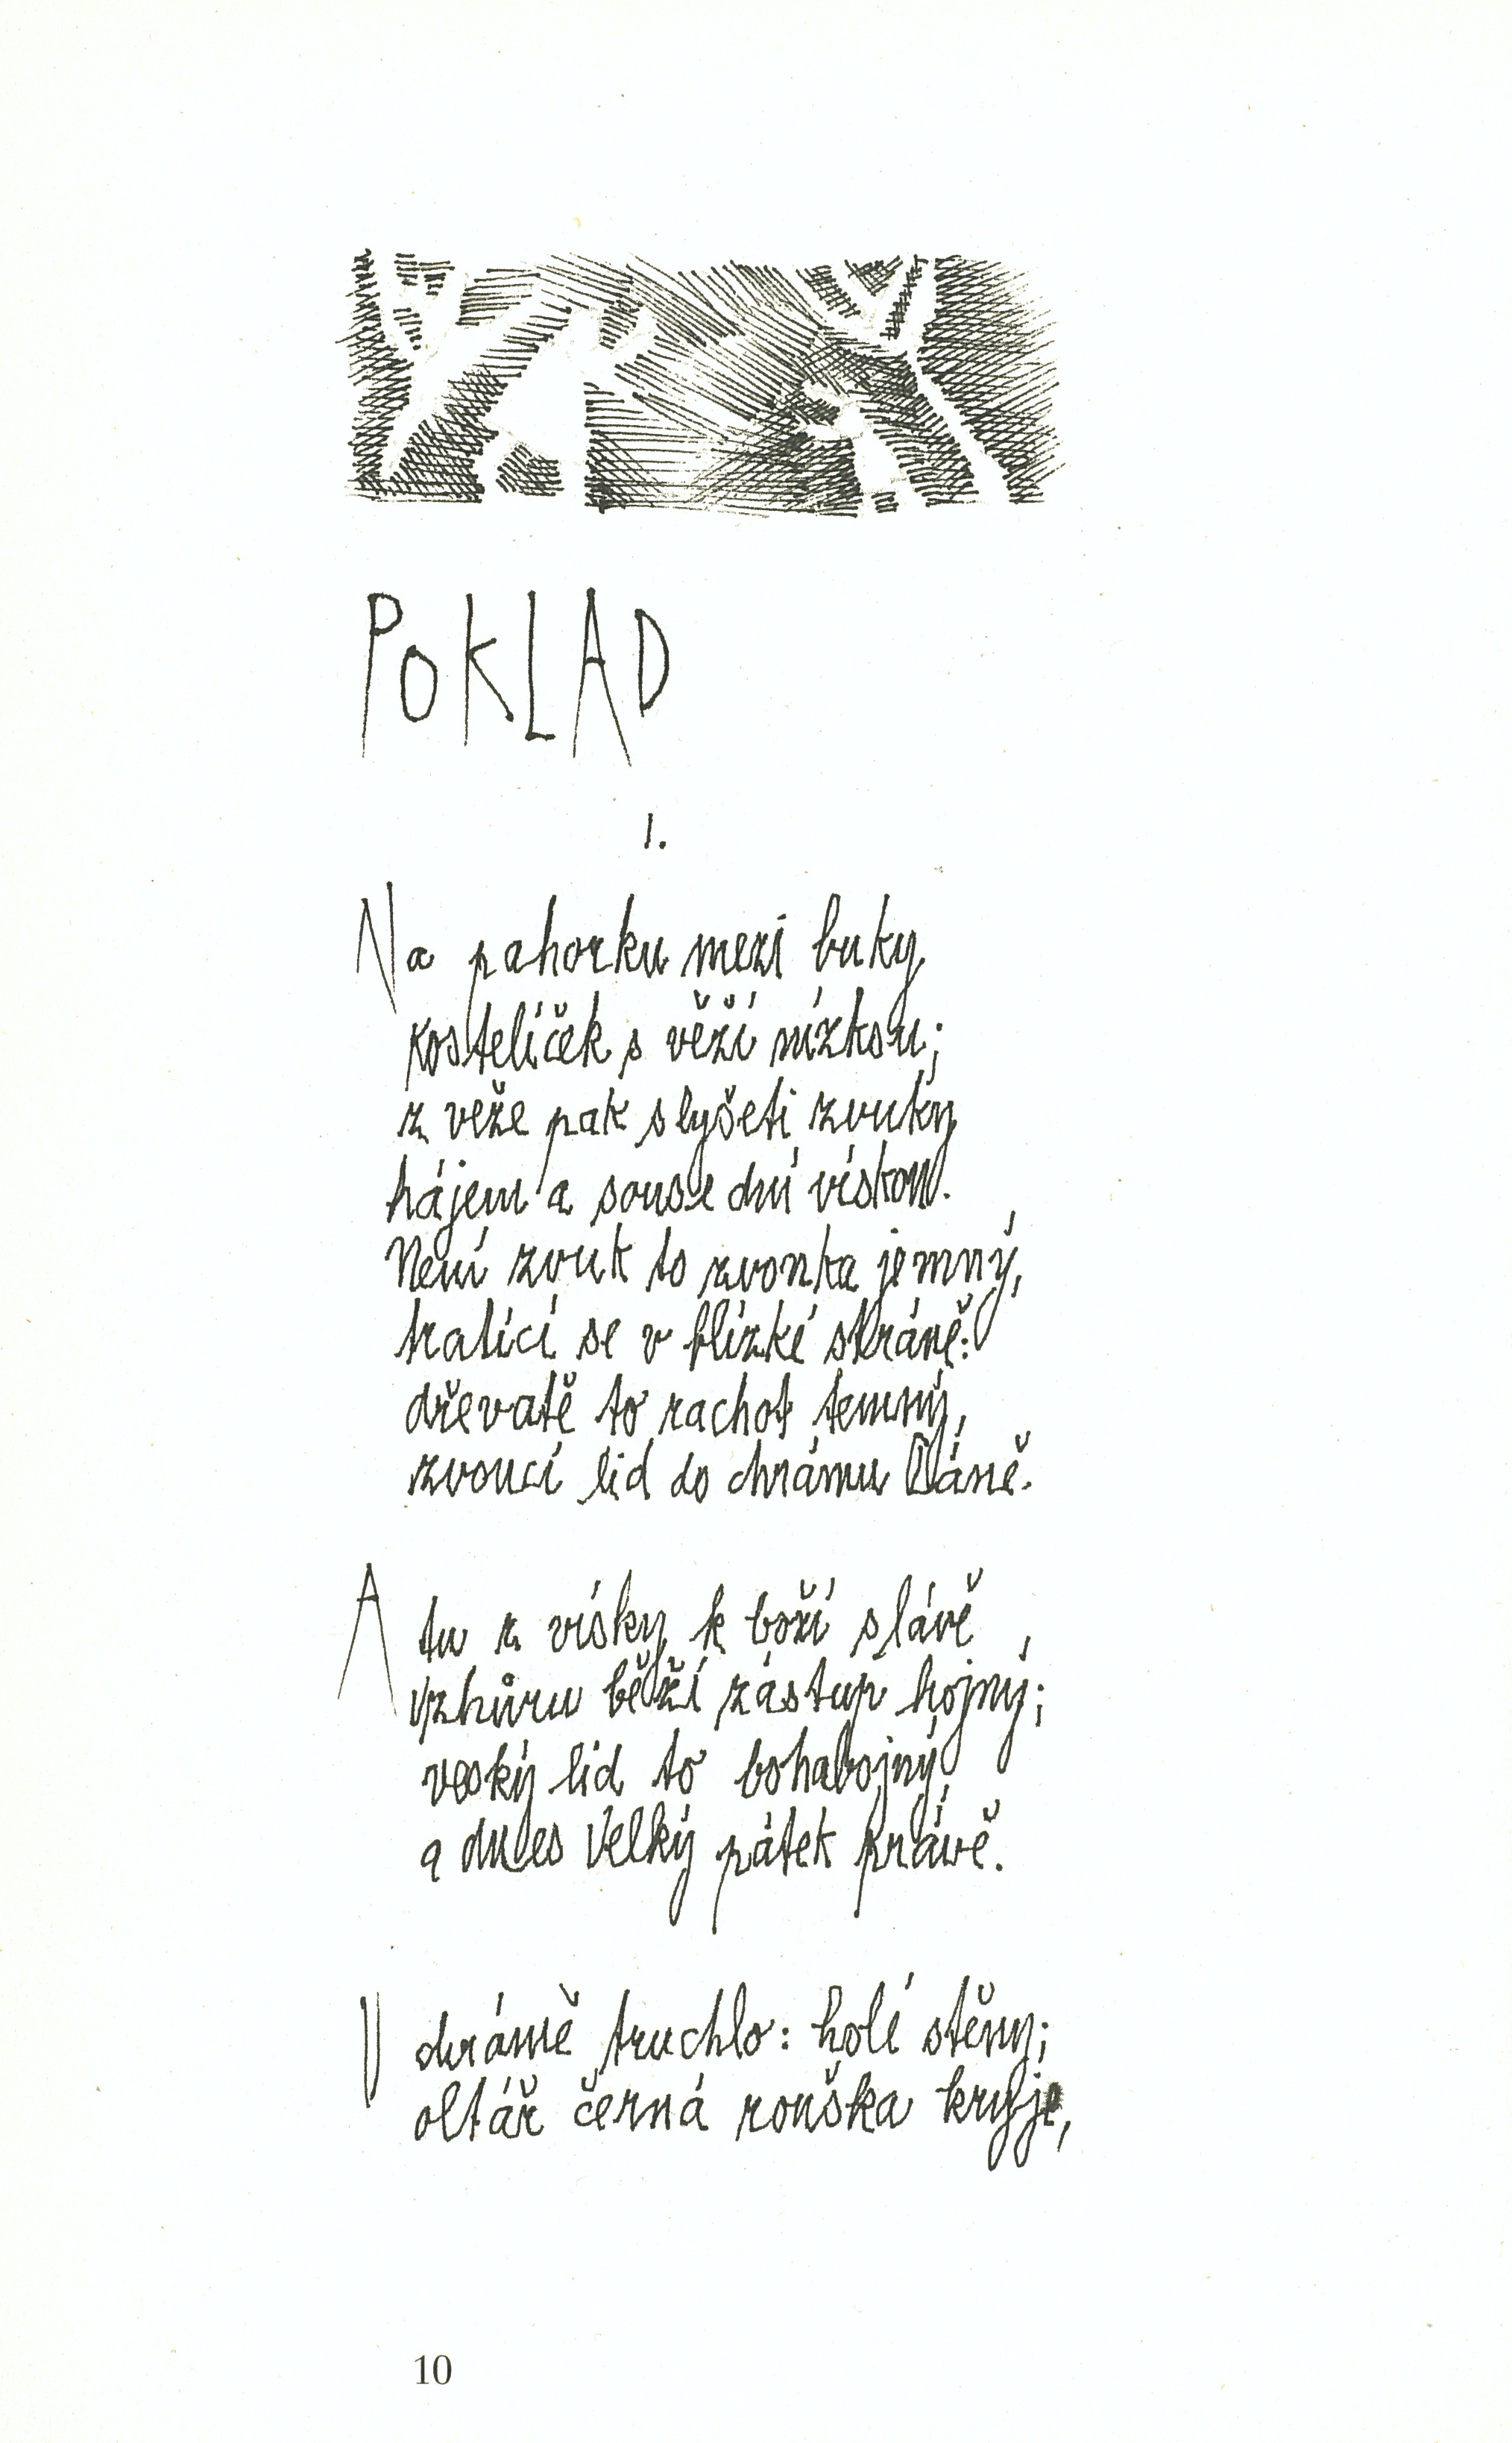 POKLAD
1.
Na pahorku mezi buky
kostelíček s věží nízkou;
z věže pak slyšeti zvuky
hájem a sousední vískou.
Není zvuk to zvonka jemný,
tratící se v blízké stráně:
dřevatě to rachot temný,
zvoucí lid do chrámu Páně.
A tu z vísky k boží slávě
vzhůru běží zástup hojný;
veský lid to bohabojný,
a dnes Velký pátek právě.
V chrámě truchlo: holé stěny;
oltář černá rouška kryje,
10